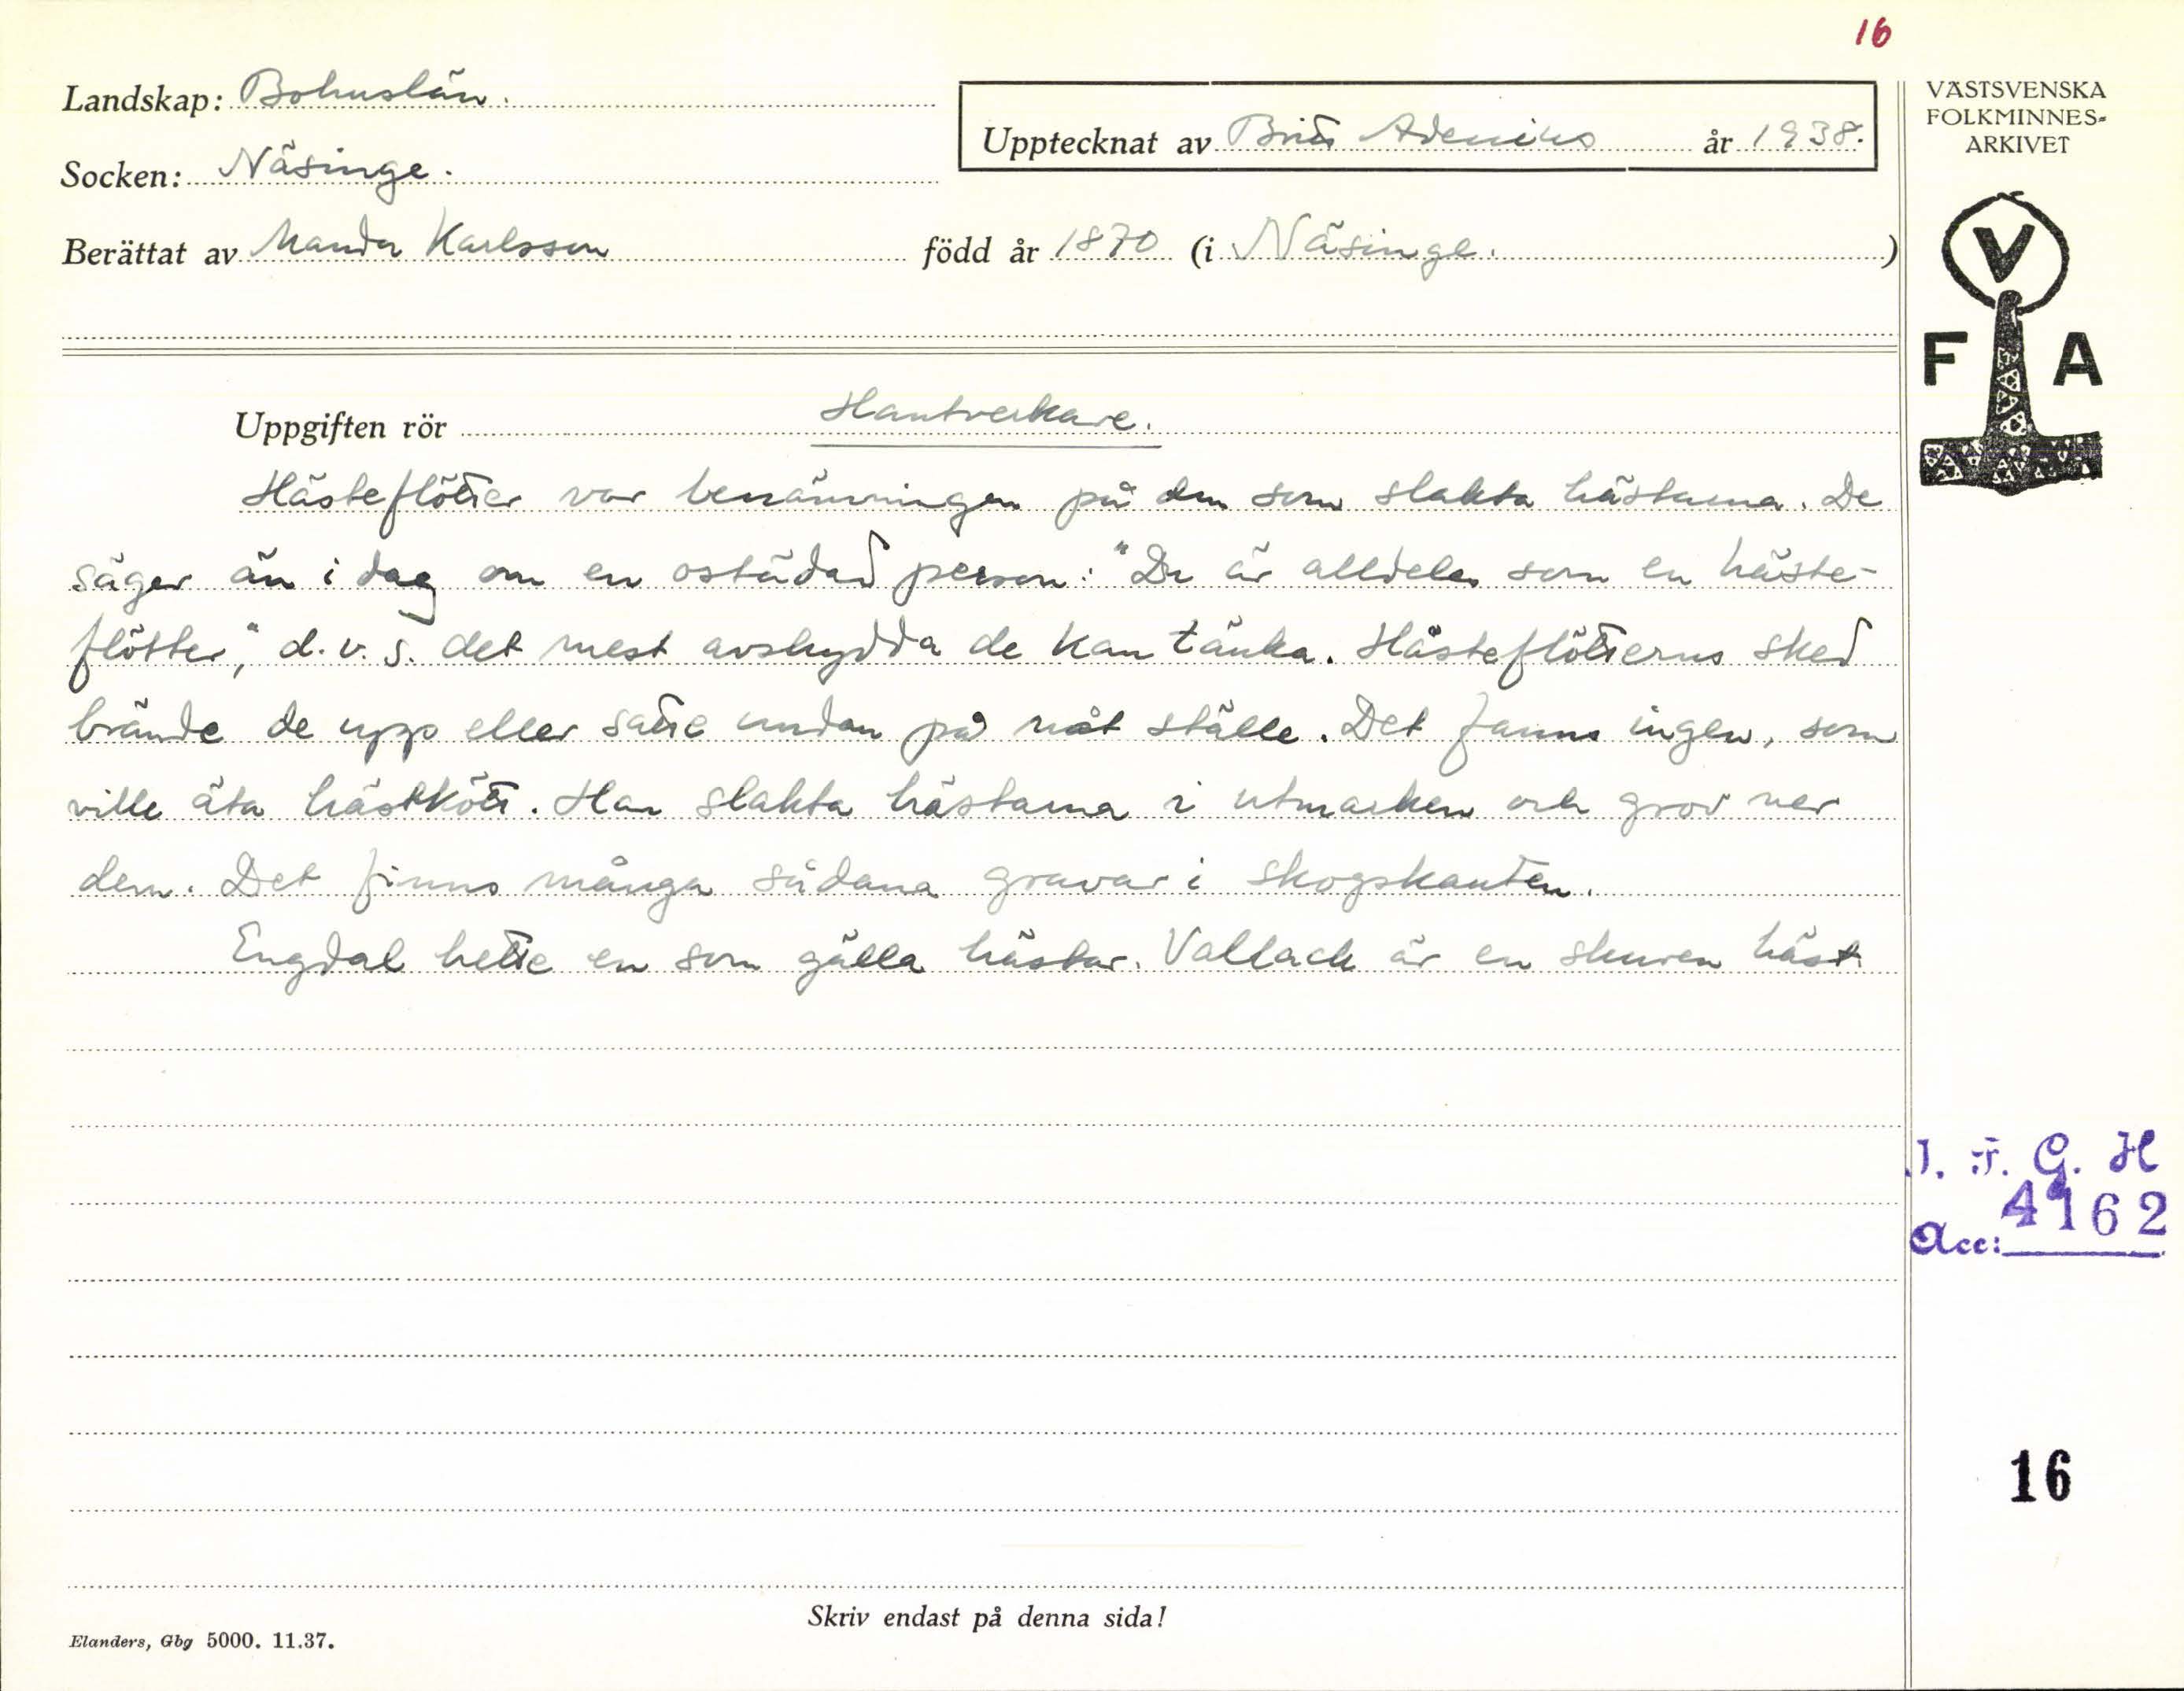 16
Landskap: Bohuslän.
Upptecknat av Britt Adenius år 1938.
Socken: Näsinge.
Berättat av Manda Karlsson född år 1870 (i Näsinge.)
VÄSTSVENSKA
FOLKMINNES-
ARKIVET
V
F A
Uppgiften rör Hantverkare.
Hästeflötter var benämningen på den som slakta hästarna. De
säger än i dag om en ostädad person: "Du är alldeles som en häste-
flötter", d.v.s. det mest avskydda de kan tänka. Hästeflötterns sked
brände de upp eller satte undan på nåt ställe. Det fanns ingen, som
ville äta hästkött. Han slakta hästarna i utmarken och grov ner
dem. Det finns många sådana gravar i skogskanten.
Engdal hette en som gälla hästar. Vallack är en skuren häst.
I. F. G. H
Acc: 4162
16
Skriv endast på denna sida!
Elanders, Gbg 5000. 11.37.